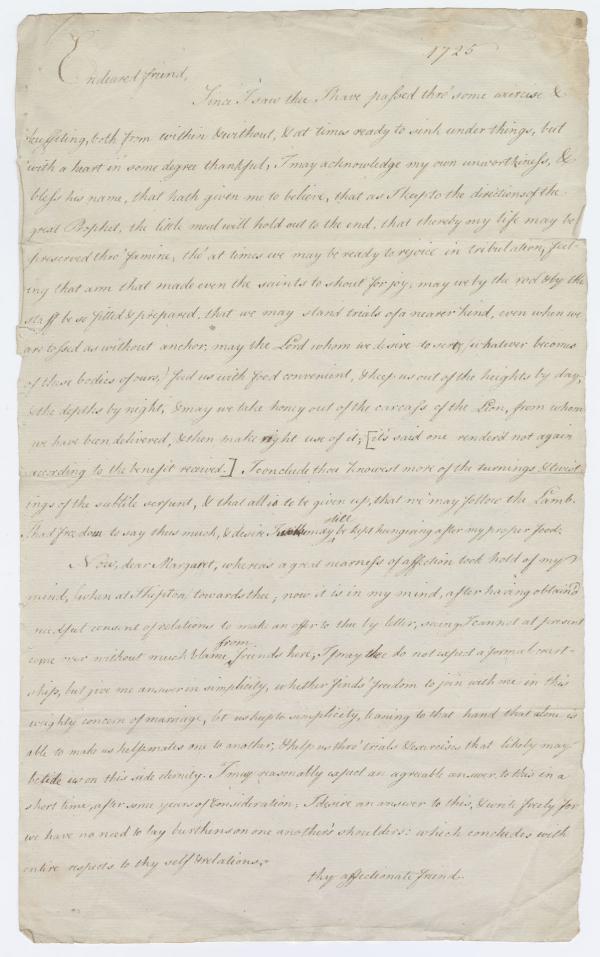 1725
Endeared friend,
Since I saw thee I have passed thro' some exercise &
buffeting, both from within & without, & at times ready to sink under things, but
with a heart in some degree thankful, I may acknowledge my own unworthiness, &
bless his name, that hath given me to believe, that as I keep to the directions of the
great Prophet, the little meal will hold out to the end, that thereby my life may be
preserved thro' famine, tho' at times we may be ready to rejoice in tribulation, feel-
ing that arm that made even the saints to shout for joy; may we by the rod & by the
staff be so fitted & prepared, that we may stand trials of a nearer kind, even when we
are tossed as without anchor; may the Lord whom we desire to serve, (whatever becomes
of these bodies of ours,) feed us with food convenient, & keep us out of the heights by day,
& the depths by night, & may we take honey out of the carcass of the Lion, from whom
we have been delivered, & then make right use of it; [it's said one render'd not again
according to the benefit received.] I conclude thou knowest more of the turnings & twist-
ings of the subtile serpent, & that all is to be given up, that we may follow the Lamb.
I had freedom to say thus much, & desire I may still be kept hungering after my proper food.
Now, dear Margaret, whereas a great nearness of affection took hold of my
mind, (when at Shipton) towards thee; now it is in my mind, after having obtain'd
needful consent of relations to make an offer to thee by letter, seeing I cannot at present
come over without much blame from friends here; I pray thee do not expect a formal court-
ship, but give me answer in simplicity, whether finds freedom to join with me in this
weighty concern of marriage, let us keep to simplicity, leaning to that hand that alone is
able to make us helpmates one to another, & help us thro' trials & exercises that likely may
betide us on this side eternity. I may reasonably expect an agreable answer to this in a
short time, after some years of consideration; I desire an answer to this, & write freely for
we have no need to lay burthens on one another's shoulders: which concludes with
entire respects to thy self & relations.
thy affectionate friend.